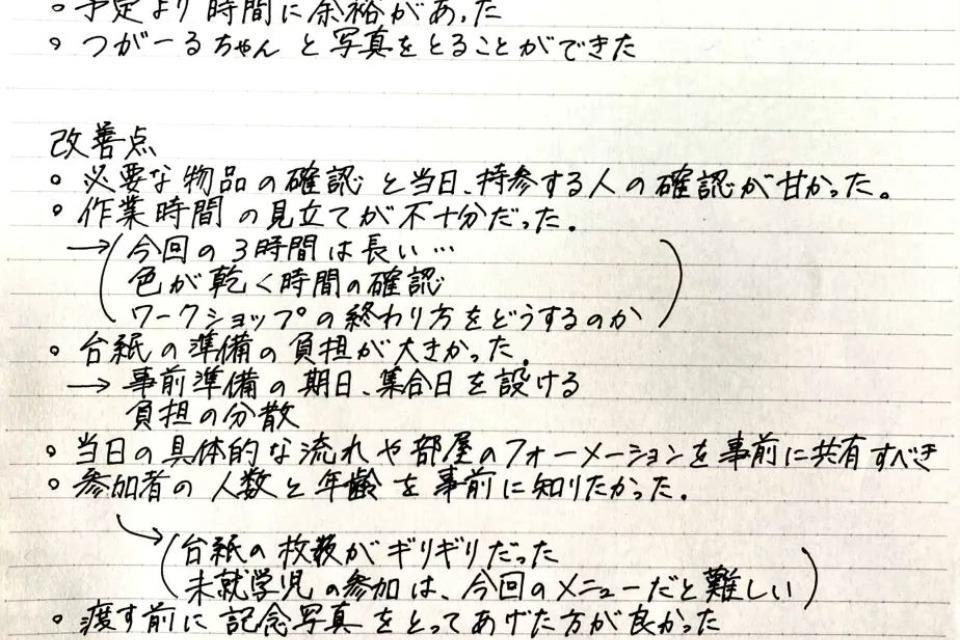 ○ 予定より時間に余裕があった
○ つがーるちゃんと写真をとることができた
改善点
○ 必要な物品の確認と当日、持参する人の確認が甘かった。
○ 作業時間の見立てが不十分だった。
→(今回の3時間は長い…
色が乾く時間の確認
ワークショップの終わり方をどうするのか)
○ 台紙の準備の負担が大きかった。
→ 事前準備の期日、集合日を設ける
負担の分散
○ 当日の具体的な流れや部屋のフォーメーションを事前に共有すべき
○ 参加者の人数と年齢を事前に知りたかった。
→(台紙の枚数がギリギリだった
未就学児の参加は、今回のメニューだと難しい)
○ 渡す前に記念写真をとってあげた方が良かった